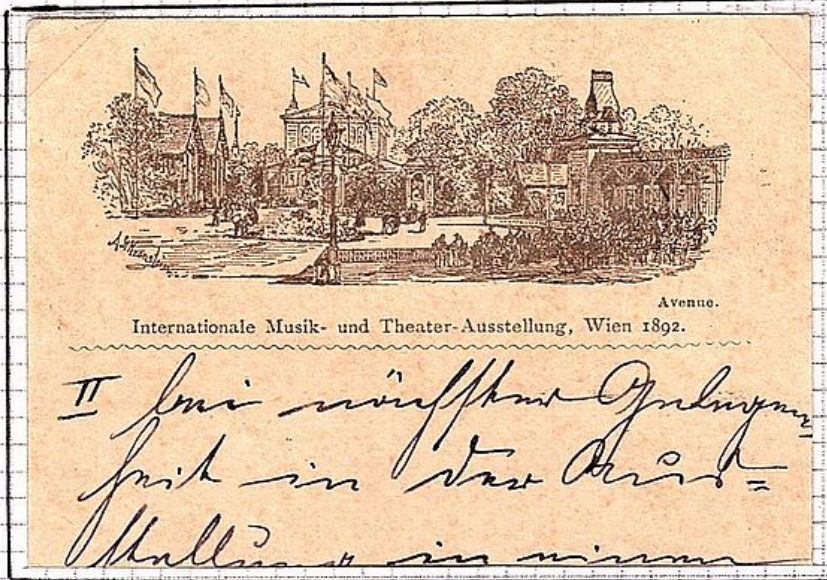 Avenue.
Internationale Musik- und Theater-Ausstellung, Wien 1892.
II bei nächster Gelegen-
heit in der Aus=
stellung in einem